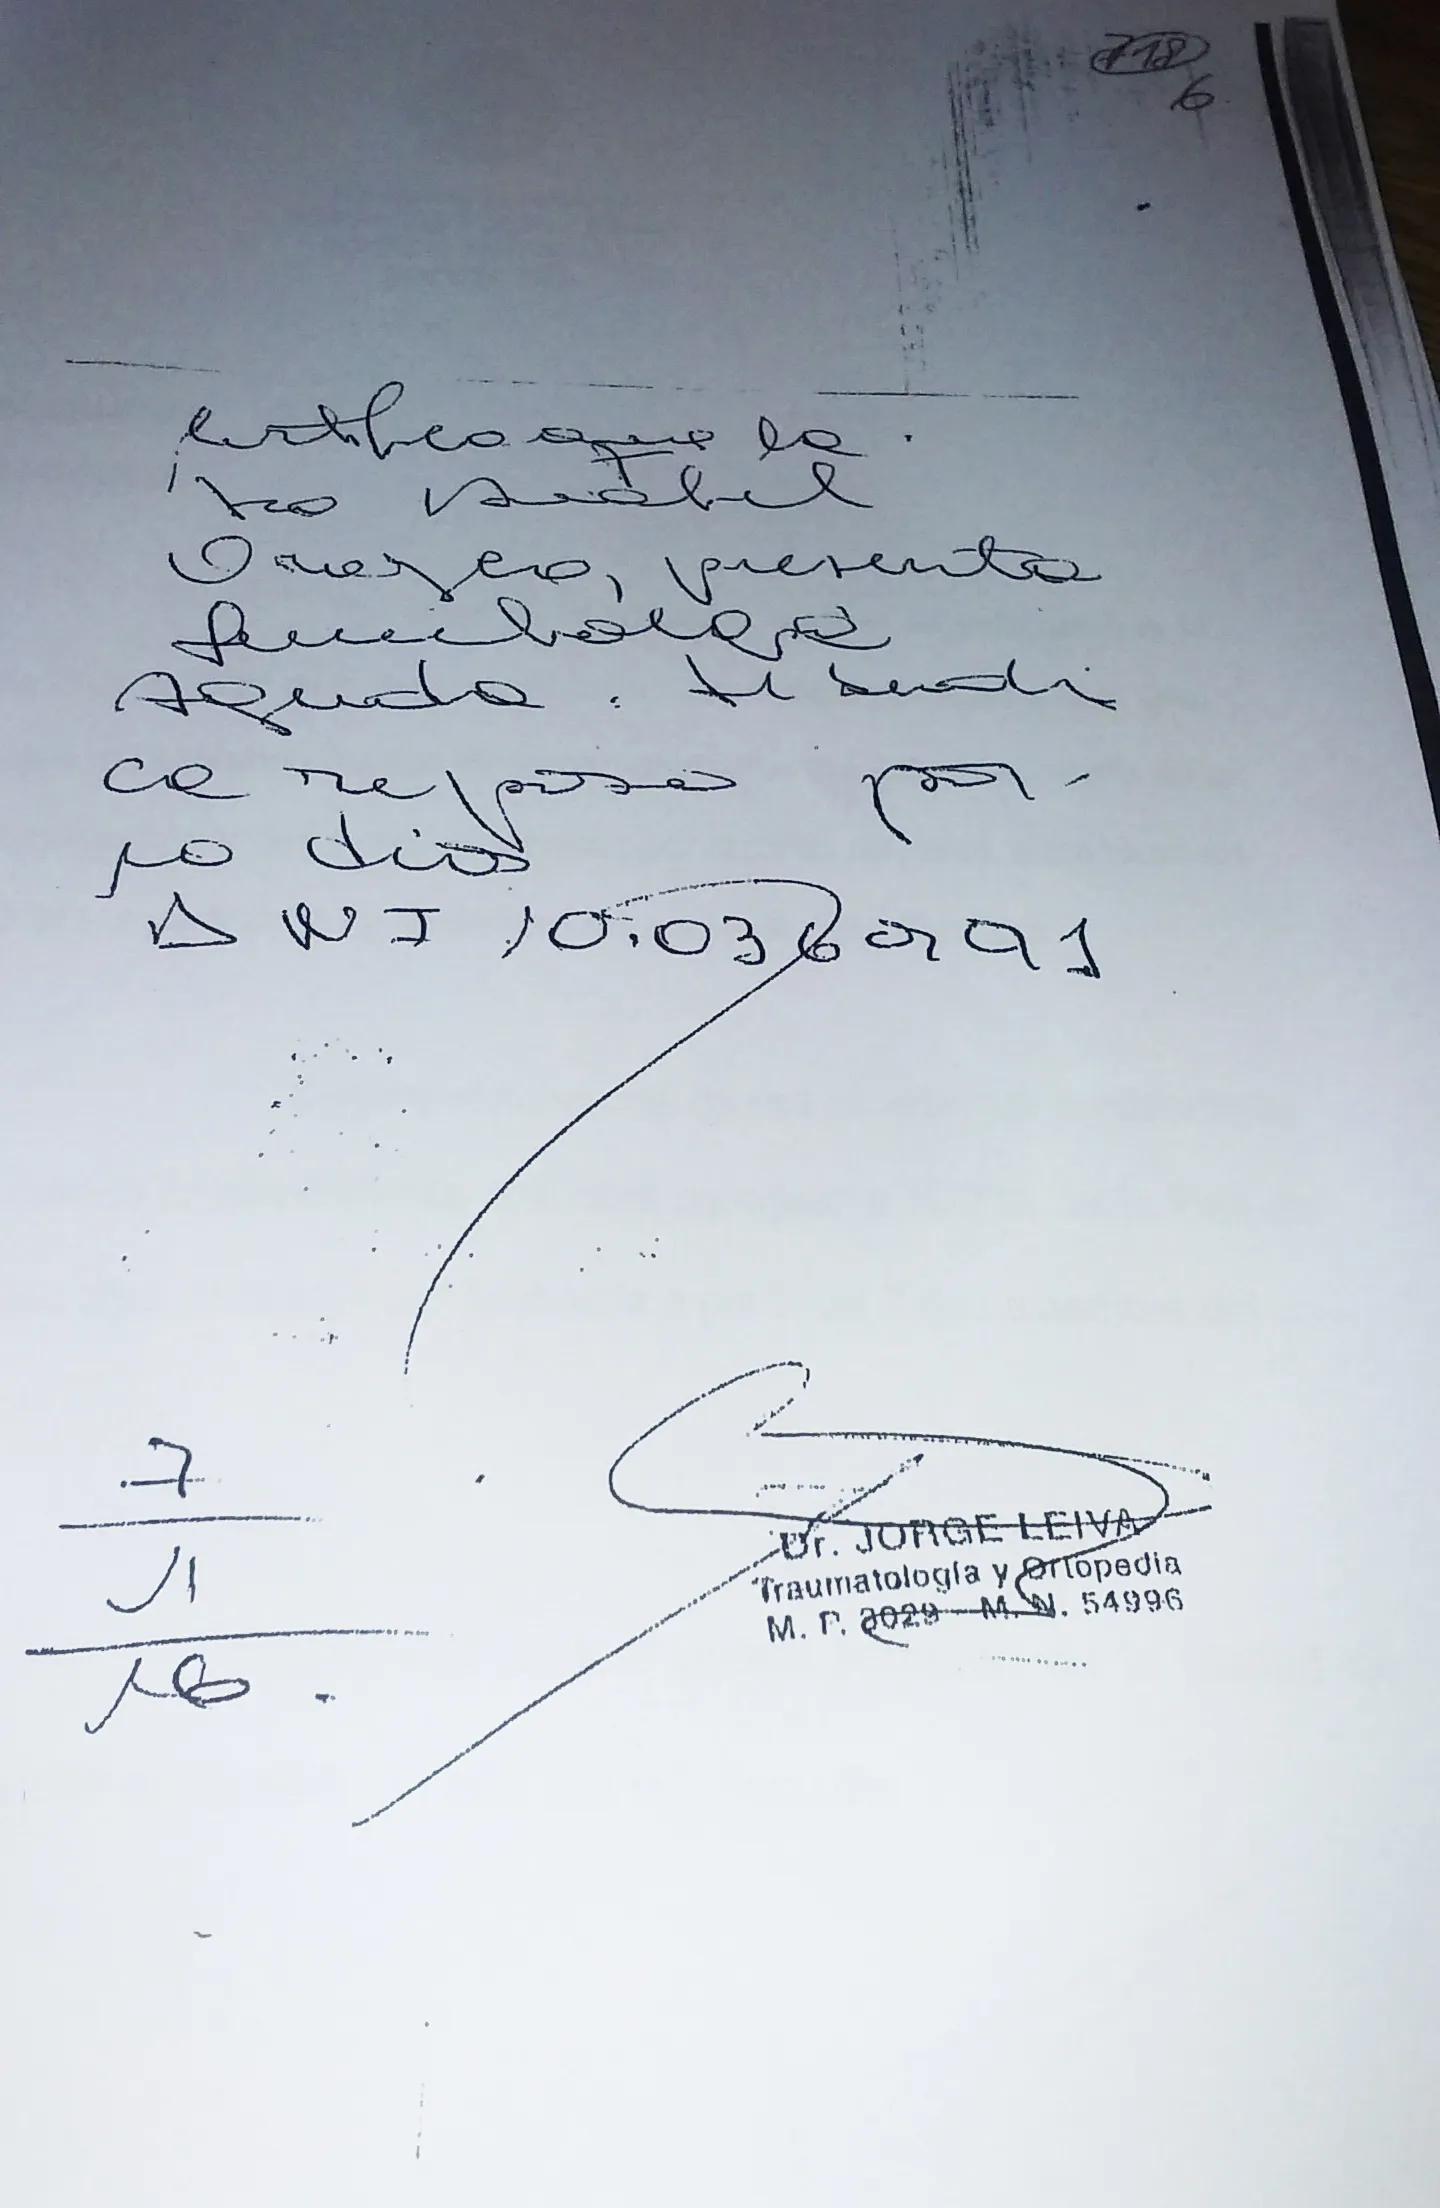 718
6
Certifico que la
Sra Isabel
presenta
lumbalgia
Aguda. Se indi
ca reposo por
10 dias
DNI 10.036
7
11
16
Dr. JORGE LEIVA
Traumatología y Ortopedia
M. P. 3029 M. N. 54996